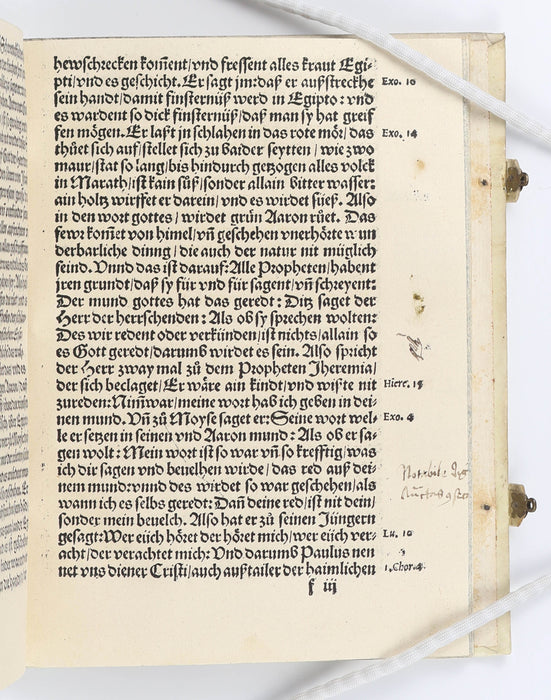 hewschrecken kom̄ent/vnd fressent alles kraut Egi-
pti/vnd es geschicht. Er sagt jm: daß er außstreckhe
sein handt/damit finsternüß werd in Egipto: vnd
es wardent so dick finsternüß/daß man sy hat greif
fen mögen. Er laßt jn schlahen in das rote mör/ das
thůet sich auf/stellet sich zů baider seytten/ wie zwo
maur/stat so lang/bis hindurch getzogen alles volck
in Marath/ist kain süß/sonder allain bitter wasser:
ain holtz wirffet er darein/vnd es wirdet süeß. Also
in den wort gottes/ wirdet grün Aaron růet. Das
fewr kom̄et von himel/vn̄ geschehen vnerhörte wun
derbarliche dinng/die auch der natur nit müglich
seind. Vnnd das ist darauf: Alle Propheten/habent
jren grundt/daß sy für vnd für sagent/vn̄ schreyent:
Der mund gottes hat das geredt: Ditz saget der
Herr der herrschenden: Als ob sy sprechen wolten:
Des wir redent oder verkünden/ist nichts/allain so
es Gott geredt/darumb wirdet es sein. Also spricht
der Herr zway mal zů dem Propheten Jheremia/
der sich beclaget/Er wäre ain kindt/vnd wiste nit
zureden: Nim̄ war/meine wort hab ich geben in dei-
nen mund. Vn̄ zů Moyse saget er: Seine wort wel-
le er setzen in seinen vnd Aaron mund: Als ob er sa-
gen wolt: Mein wort ist so war vn̄ so krefftig/was
ich dir sagen vnd beuelhen wirde/das red auß dei-
nem mund: vnnd des wirdet so war geschehen/als
wann ich es selbs geredt: Dan̄ deine red/ist nit dein/
sonder mein beuelch. Also hat er zů seinen Jüngern
gesagt: Wer eüch höret der höret mich/wer eüch ver-
acht/der verachtet mich: Vnd darumb Paulus nen
net vns diener Cristi/auch außtailer der haimlichen
f iij
Exo. 10
Exo. 14
Hiere. 15
Exo. 4
Lu. 10
1. Chor. 4.